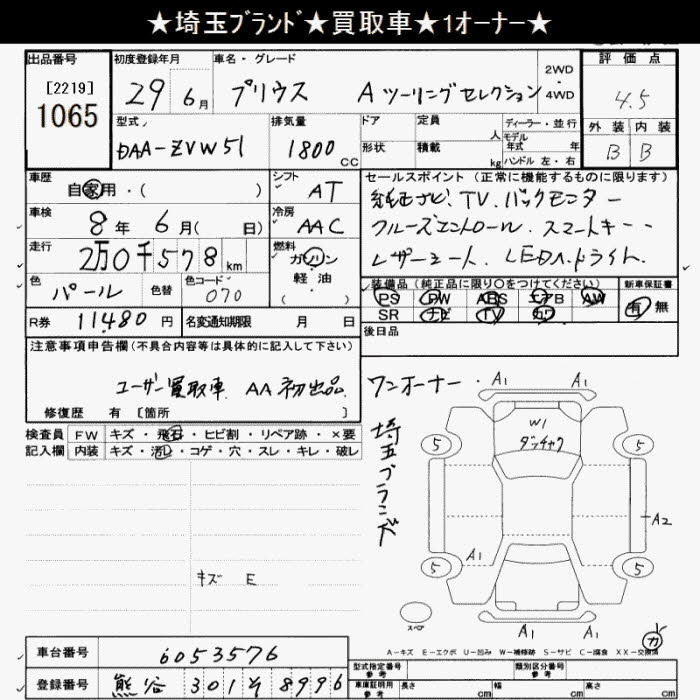 ★埼玉ﾌﾞﾗﾝﾄﾞ★買取車★1ｵｰﾅｰ★
出品番号 [2219] 1065
初度登録年月 29 6月
車名・グレード プリウス Aツーリングセレクション 2WD・4WD
評価点 4.5
外装 内装
B B
型式 DAA-ZVW51
排気量 1800cc
ドア 形状
定員 人
積載 kg
ディーラー・並行
モデル年式 年
ハンドル 左・右
車歴 自家用・( )
シフト AT
セールスポイント (正常に機能するものに限ります)
純正ナビ、TV、バックモニター
クルーズコントロール、スマートキー
レザーシート、LEDヘッドライト、
車検 8年 6月( 日)
冷房 AAC
走行 2万0千578km
燃料 ガソリン 軽油 ( )
色 パール 色替
色コード 070
装備品 (純正品に限り○をつけてください)
PS PW ABS エアB AW
SR ナビ TV カワ
新車保証書 有 無
R券 11480円
名変通知期限 月 日
後日品
注意事項申告欄(不具合内容等は具体的に記入して下さい)
ユーザー買取車 AA初出品
修復歴 有 [箇所 ]
検査員記入欄
FW キズ・飛石・ヒビ割・リペア跡・×要
内装 キズ・汚れ・コゲ・穴・スレ・キレ・破レ
キズ E
ワンオーナー・
埼玉ブランド
A1 A1
W1
ダッチャク
5 5
A2
A1
5 5
A1
スペア
ガ
A－キズ E－エクボ U－凹み W－補修跡 S－サビ C－腐食 XX－交換済
車台番号 6053576
登録番号 熊谷 301 8996
型式指定番号 参考
類別区分番号 参考
車庫証明用 参考 長さ cm 幅 cm 高さ cm